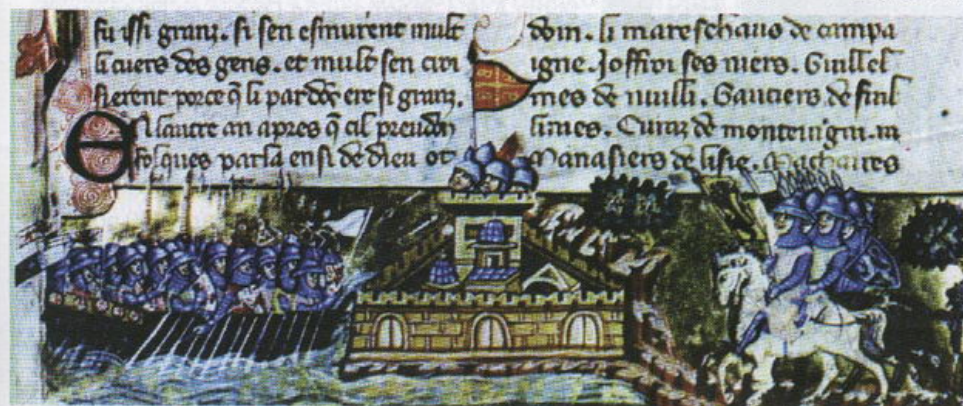 fu issi granz. si sen esmurent mult
li cuers des gens. et mult sen croi
sierent porce q̃ li pardõs ere si granz.
En lautre an apres q̃ cil preudõ
folques parla ensi de dieu ot
doin. li mareschaus de campa
igne. Joffroi ses niers. Guillel
mes de nuilli. Gautiers de
Euraz de monteingni.
Manasiers de lisle. Machaires